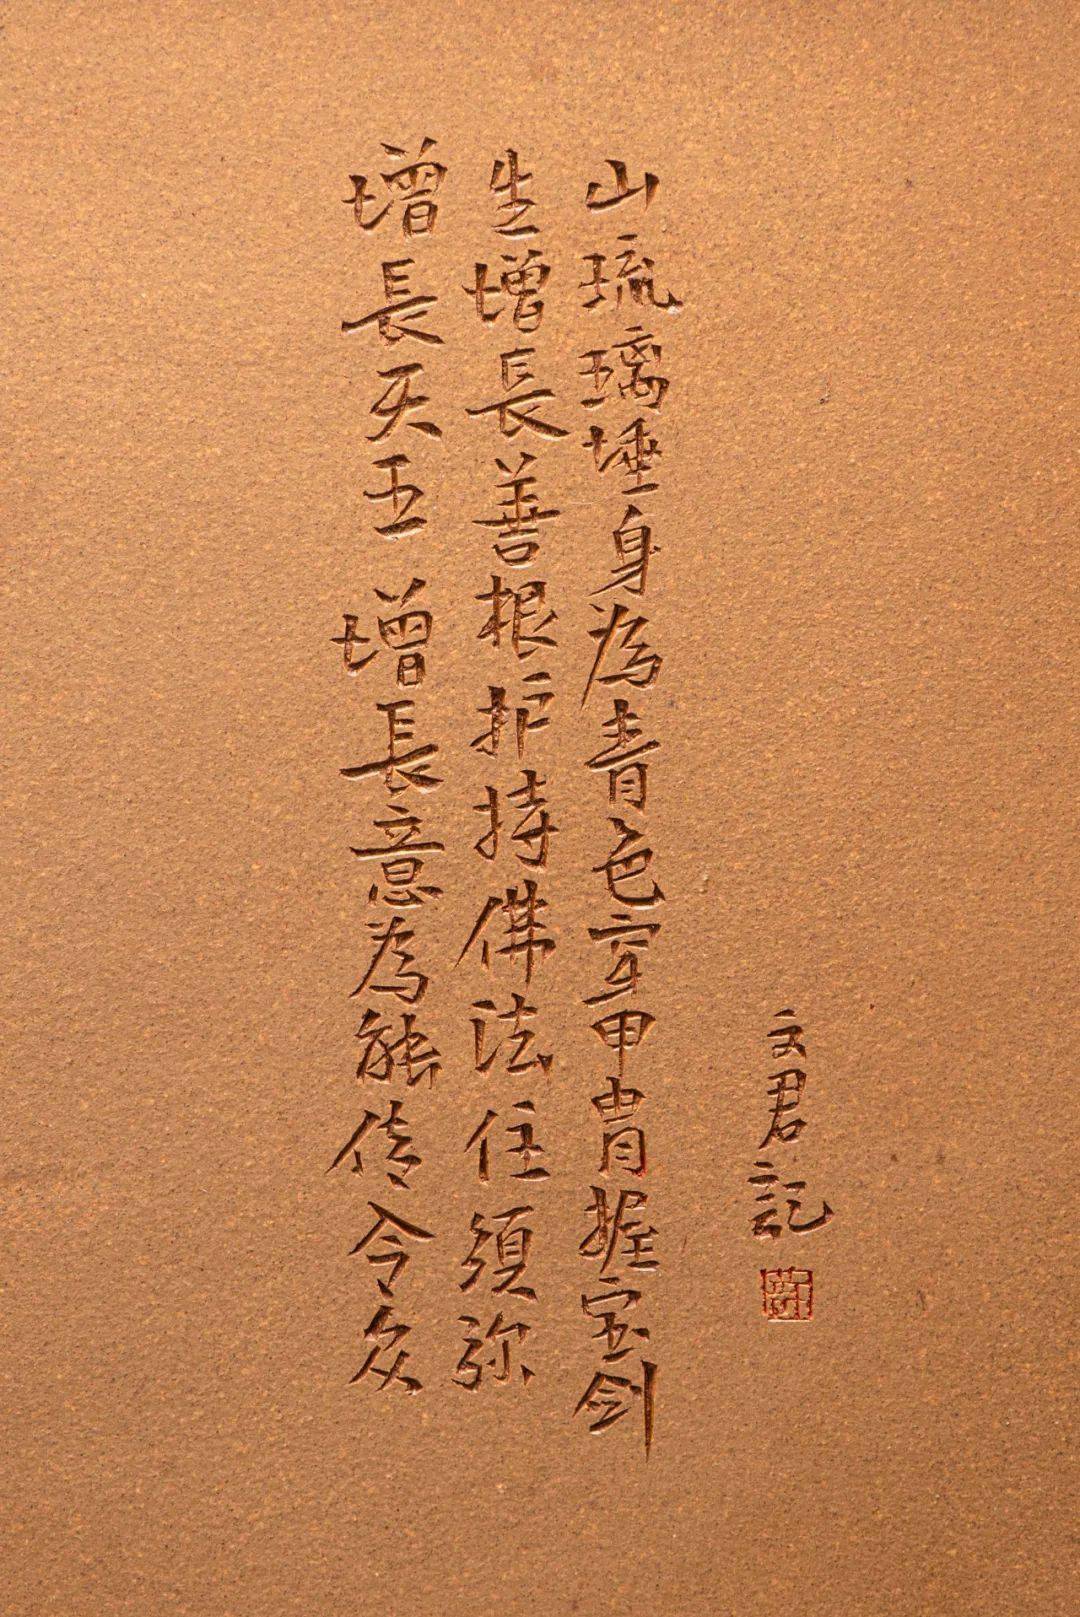 增長天王 增長意為能传令众
生增長善根护持佛法住須弥
山琉璃埵身為青色穿甲胄握宝剑
文君記